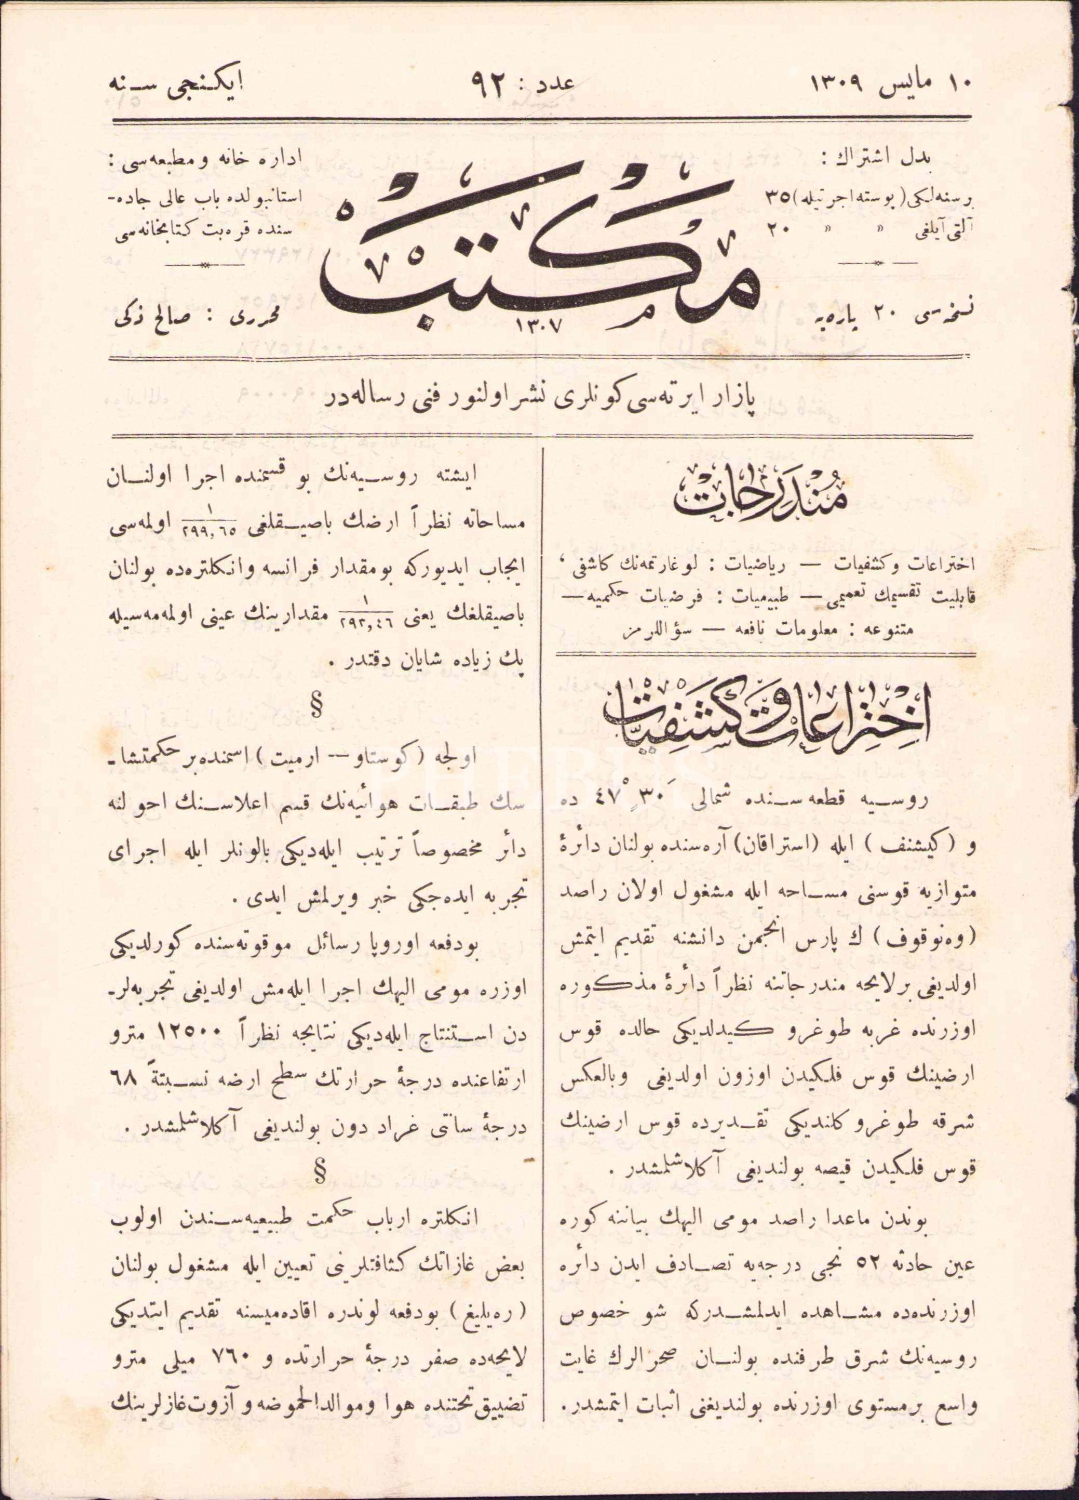 ١٠ مايس ١٣٠٩
عدد : ٩٢
ايكـنجى سـنه
بدل اشتراك :
برسنه‌لكى (پوسته اجرتيله) ٣٥
آلتى آيلغى » » ٢٠
نسخه‌سى ٢٠ پاره‌يه
مكتب
١٣٠٧
اداره خانه و مطبعه‌سى :
استانبولده باب عالى جاده-
سنده قره‌بت كتابخانه‌سى
محررى : صالح ذكى
پازار ايرته‌سى كونلرى نشر اولنور فنى رساله‌در
مندرجات
اختراعات وكشفيات — رياضيات : لوغارتمه‌نك كاشفى ،
قابليت تقسيمك تعميمى — طبيعيات : فرضيات حكميه —
متنوعه : معلومات نافعه — سؤاللرمز
اختراعات وكشفيات
روسـيه قطعه‌سـنده شمالى ٣٠َ ٤٧ْ ده
و (كيشنف) ايله (استراقان) آره‌سنده بولنان دائرۀ
متوازيه قوسنى مسـاحه ايله مشغول اولان راصد
(وه‌نوقوف) ك پارس انجمن دانشنه تقديم ايتمش
اولديغى برلايحه مندرجاتنه نظراً دائرۀ مذكوره
اوزرنده غربه طوغرو كيدلديكى حالده قوس
ارضينك قوس فلكيدن اوزون اولديغى وبالعكس
شرقه طوغرو كلنديكى تقـديرده قوس ارضينك
قوس فلكيدن قيصه بولنديغى آكلاشلمشدر .
بوندن ماعدا راصد مومى اليهك بياننه كوره
عين حادثه ٥٢ نجى درجه‌يه تصـادف ايدن دائره
اوزرنده‌ده مشـاهده ايدلمشـدركه شو خصوص
روسيه‌نك شرق طرفنده بولنـان صحرالرك غايت
واسع برمستوى اوزرنده بولنديغنى اثبات ايتمشدر.
ايشته روسـيه‌نك بو قسمنده اجرا اولنـان
مساحاته نظراً ارضك باصيـقلغى ١/٢٩٩,٦٥ اولمه‌سى
ايجاب ايديوركه بومقدار فرانسه وانكلتره‌ده بولنان
باصيقلغك يعنى ١/٢٩٢,٤٦ مقدارينك عينى اولمه‌مه‌سيله
پك زياده شايان دقتدر .
§
اولجه (كوستاو — ارميت) اسمنده برحكمتشا-
سك طبقـات هوائيه‌نك قسم اعلاسـنك احوالنه
دائر مخصوصاً ترتيب ايله‌ديكى بالونلر ايله اجراى
تجربه ايده‌جكى خبر ويرلمش ايدى .
بودفعه اوروپا رسائل موقوته‌سنده كورلديكى
اوزره مومى اليهك اجرا ايله‌مش اولديغى تجربه‌لر-
دن اسـتنتاج ايله‌ديكى نتايجه نظراً ١٢٥٠٠ مترو
ارتفاعنده درجۀ حرارتك سطح ارضه نسـبتةً ٦٨
درجۀ سانتى غراد دون بولنديغى آكلاشلمشدر .
§
انكلتره ارباب حكمت طبيعيه‌سـندن اولوب
بعض غازاتك كثافتلرينى تعيين ايله مشغول بولنان
(ره‌يليغ) بودفعه لوندره اقاده‌ميسنه تقديم ايتديكى
لايحه‌ده صفر درجۀ حرارتده و ٧٦٠ ميلى مترو
تضييق تحتنده هوا ومولدالحموضه و آزوت غازلرينك